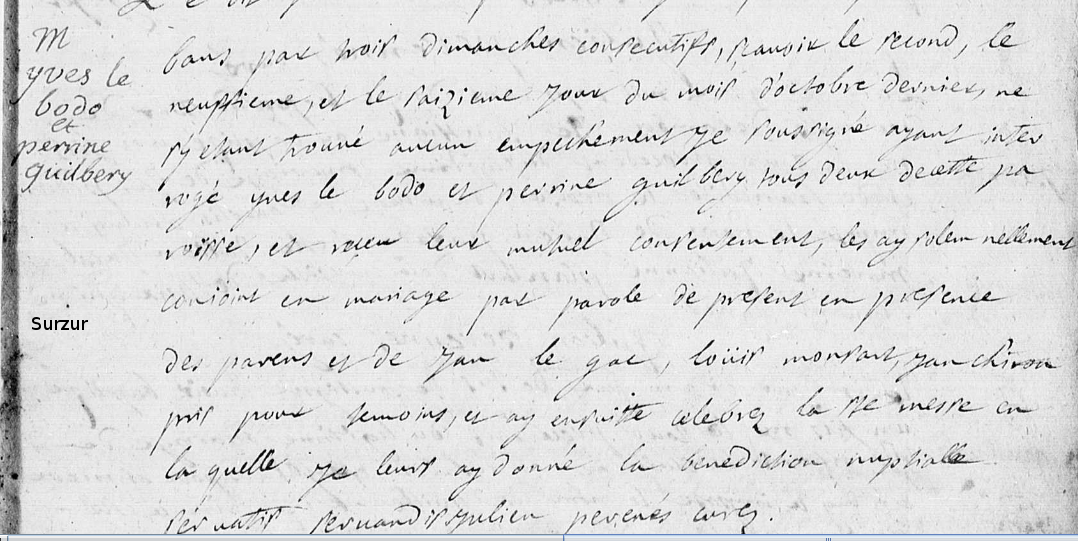 M
yves le
bodo
et
perrine
guilbery
Surzur
bans par trois dimanches consecutifs, scavoir le second, le
neuffieme, et le saizieme jour du mois d'octobre dernier, ne
s'y etant trouvé aucun empechement je soussigné ayant inter
rogé yves le bodo et perrine guilbery tous deux de cette pa
roisse, et receu leur mutuel consentement, les ay solemnellement
conjoint en mariage par parole de present en presence
des parens et de jan le gac, loüis monsart, jan chiron
pris pour temoins, et ay ensuitte celebrez la ste messe en
la quelle je leurs ay donné la benediction nuptialle
servatis servandis julien perenés curez.